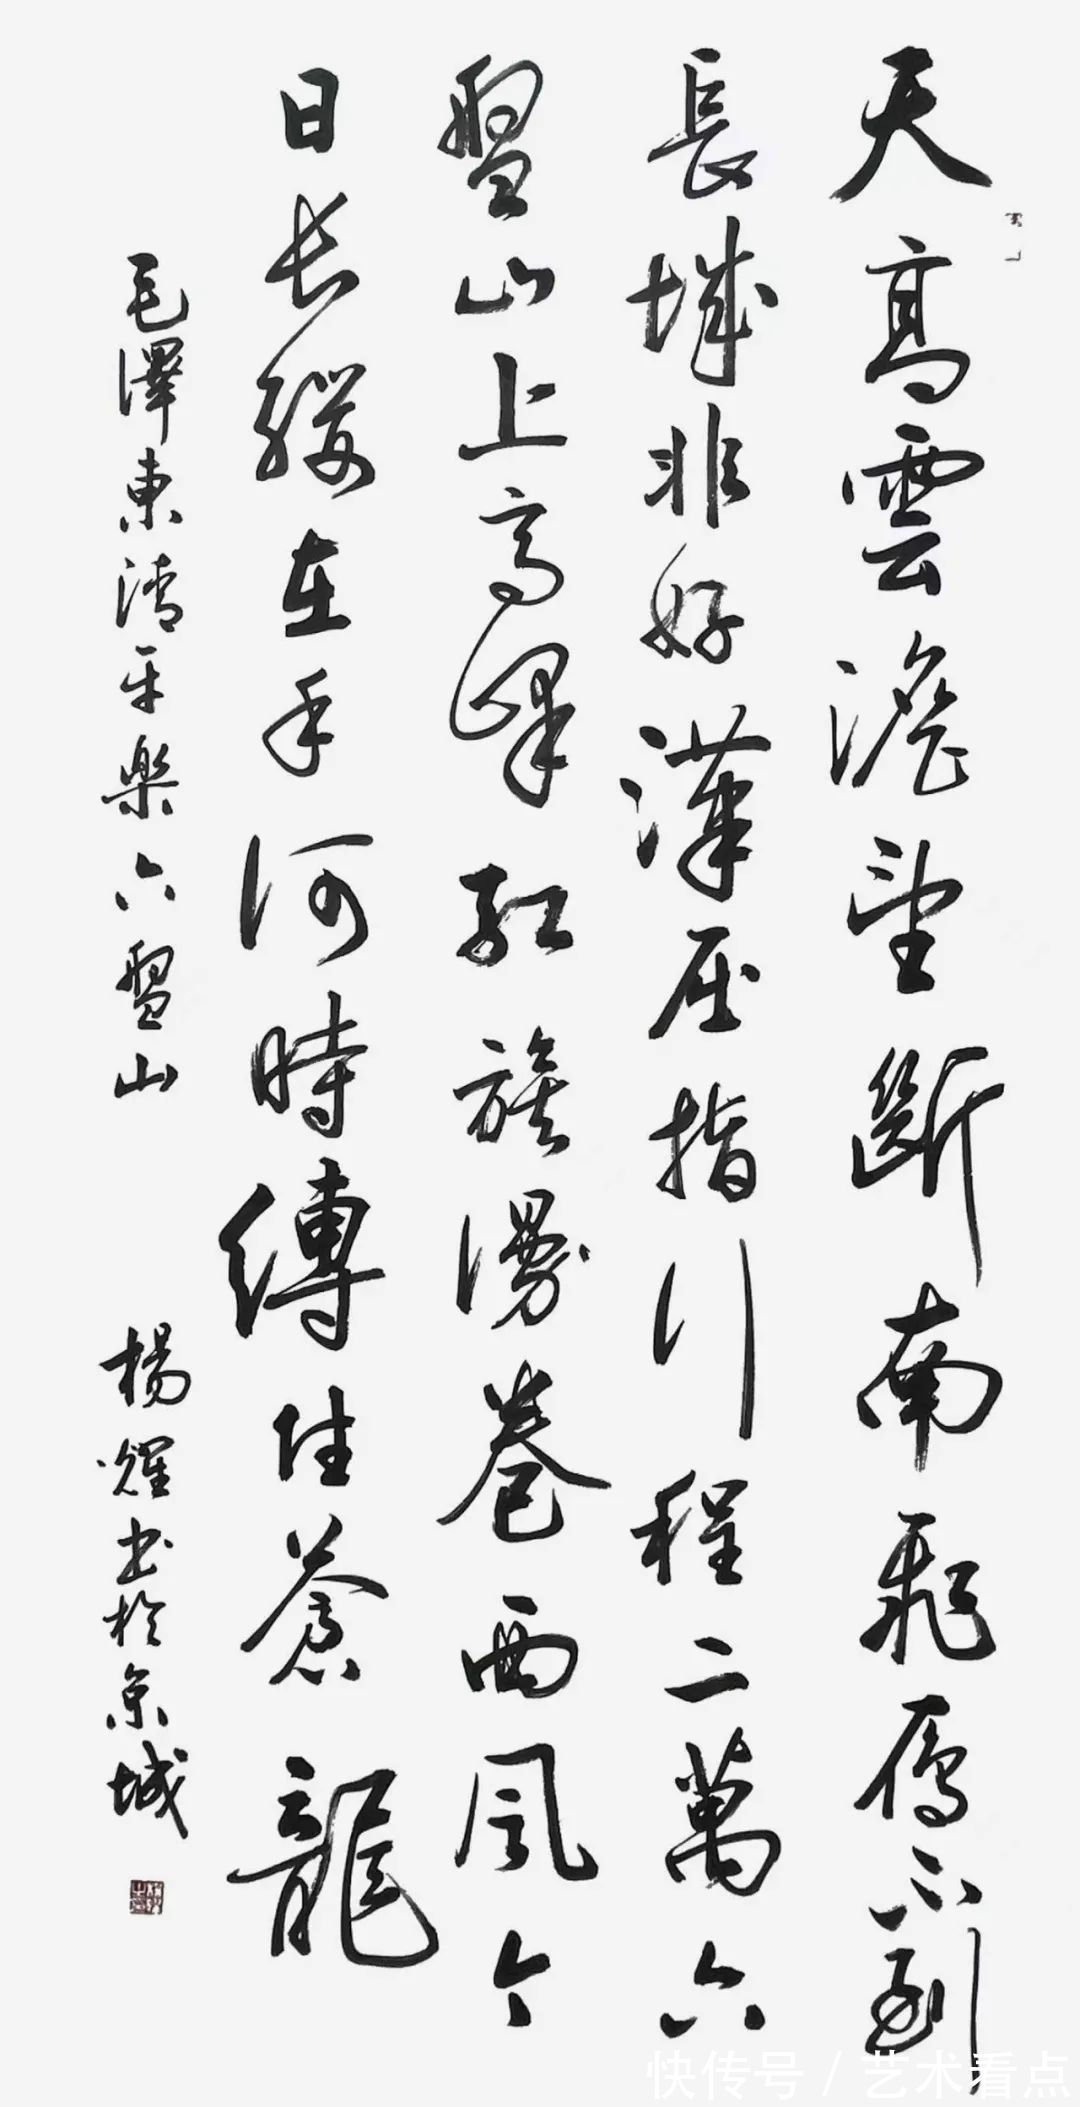 天高雲澹望斷南飛雁不到
長城非好漢屈指行程二萬六
盤山上高峰紅旗漫卷西風今
日长纓在手何時縛住蒼龍
毛澤東清平樂六盤山
楊耀书於京城
快传号 / 艺术看点